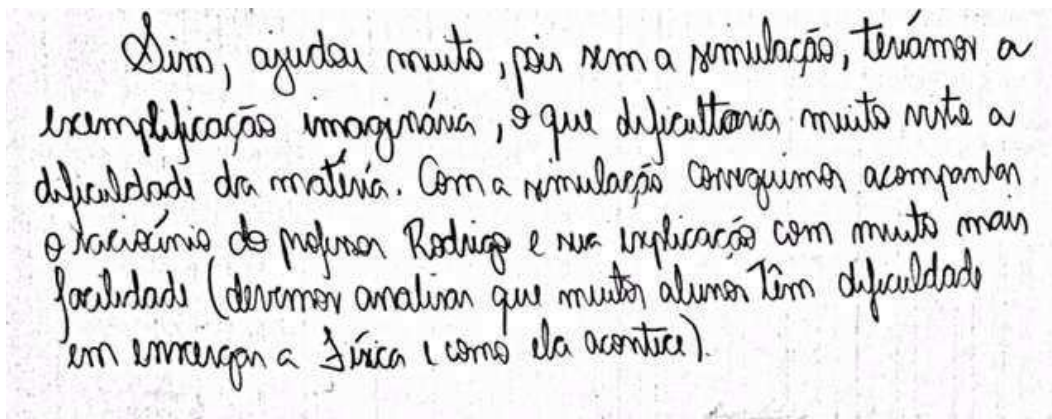 Sim, ajudou muito, pois sem a simulação, teríamos a
exemplificação imaginária, o que dificultaria muito visto a
dificuldade da matéria. Com a simulação conseguimos acompanhar
o raciocínio do professor Rodrigo e sua explicação com muito mais
facilidade (devemos analisar que muitos alunos têm dificuldade
em enxergar a Física e como ela acontece).